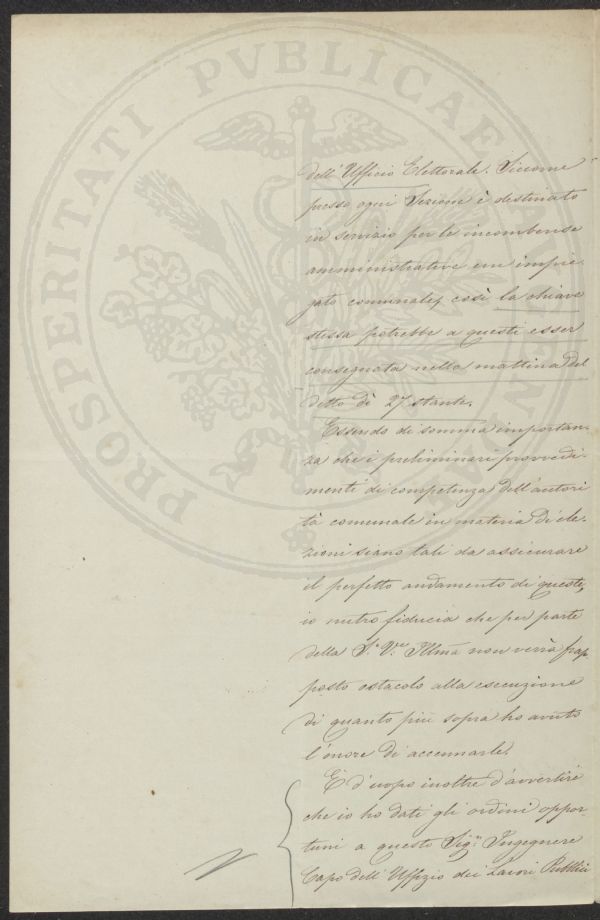 PROSPERITATI PVBLICAE
dell'Ufficio Elettorale. Siccome
presso ogni Sezione è destinato
in servizio per le incombenze
amministrative un impie-
gato comunale, così la chiave
stessa potrebbe a questi esser
consegnata nella mattina del
detto dì 27 stante.
Essendo di somma importan-
za che i preliminari provvedi-
menti di competenza dell'autori
tà comunale in materia di ele-
zioni siano tali da assicurare
il perfetto andamento di queste,
io nutro fiducia che per parte
della S. V. Illma non verrà frap
posto ostacolo alla esecuzione
di quanto più sopra ho avuto
l'onore di accennarle.
È d'uopo inoltre d'avvertire
che io ho dati gli ordini oppor-
tuni a questo Sigr. Ingegnere
Capo dell'Uffizio dei Lavori Pubblici